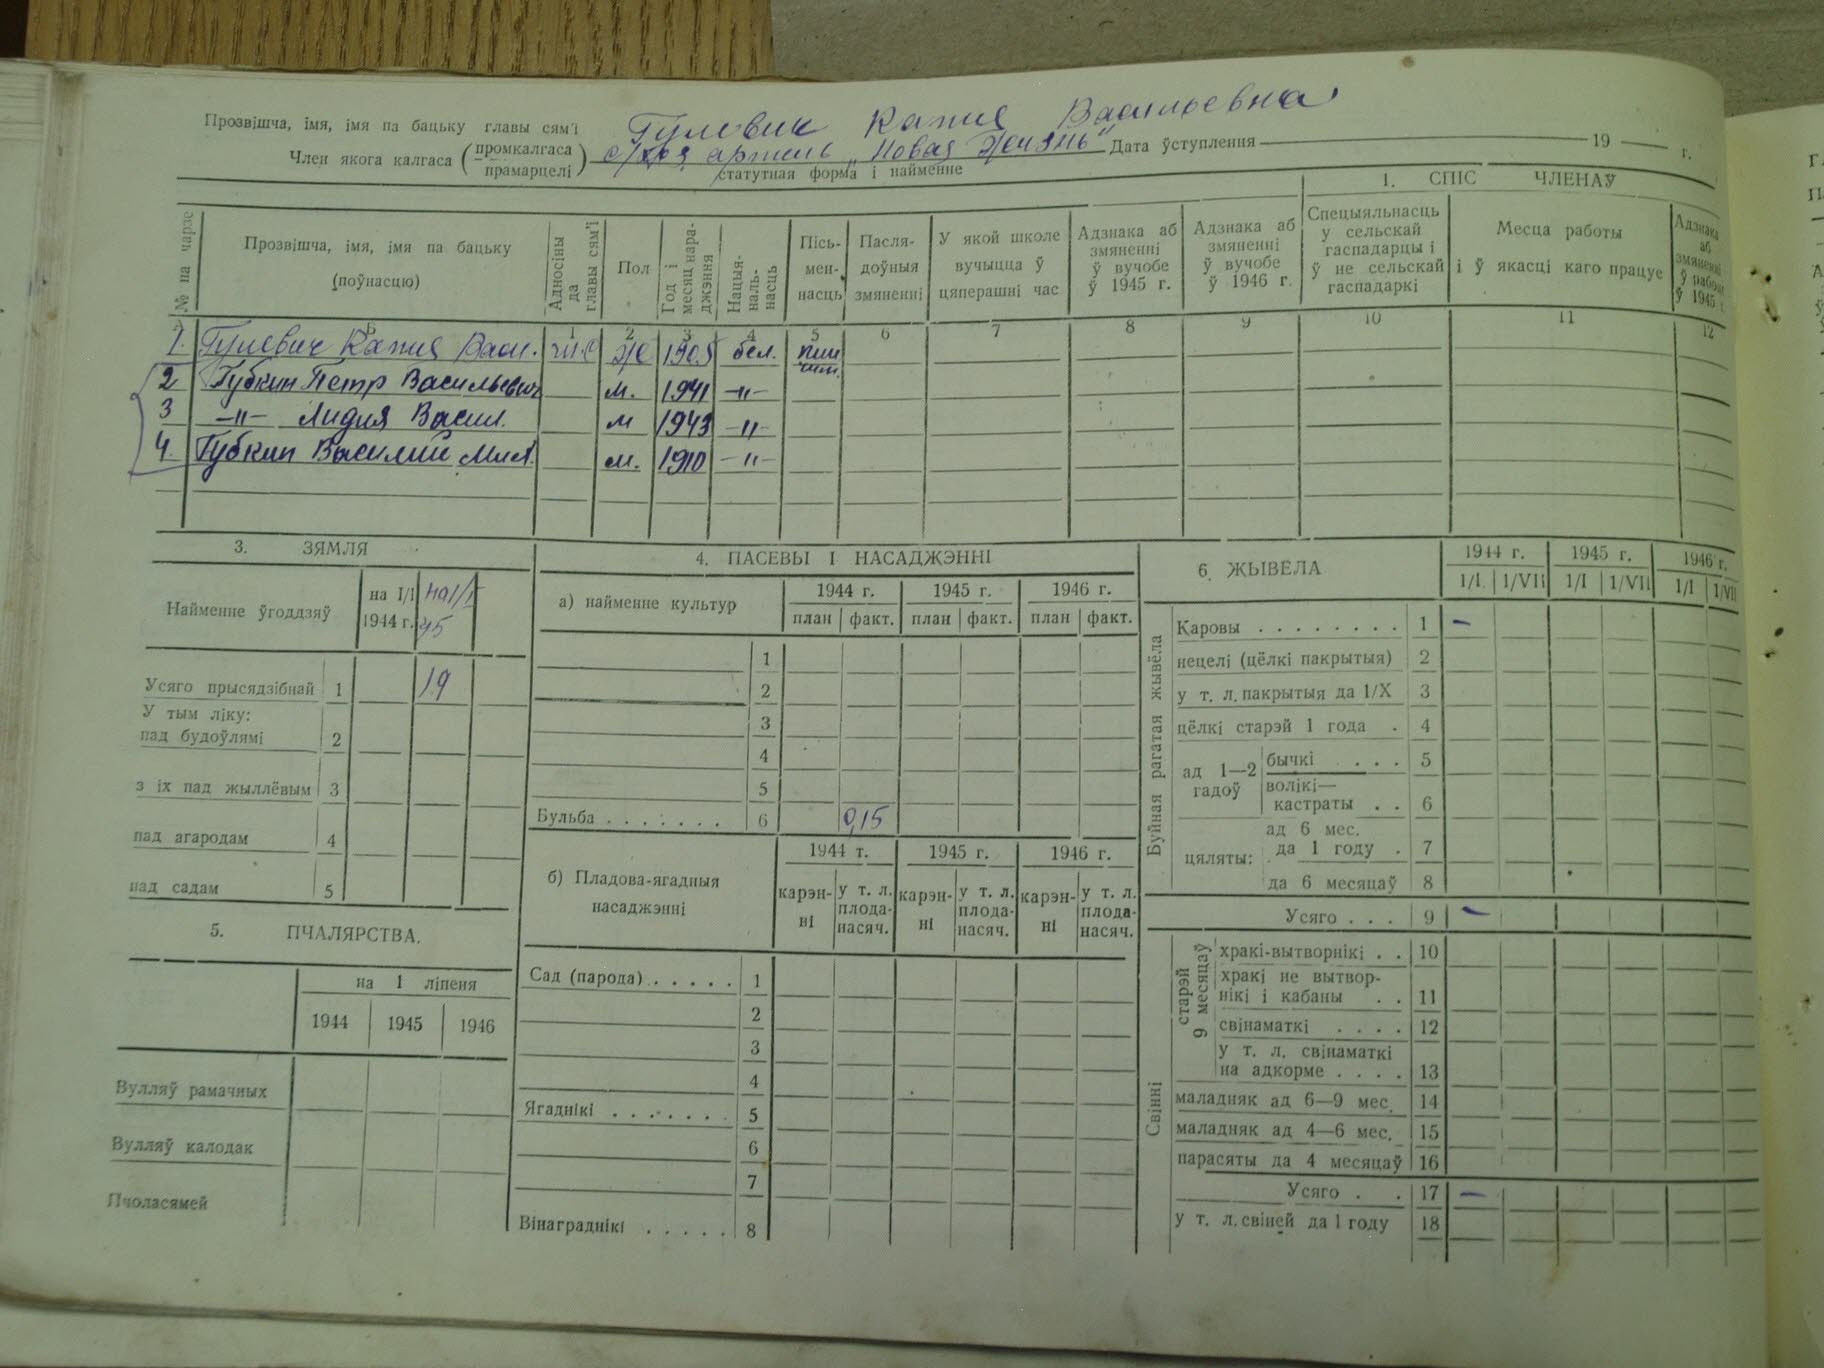 Прозвішча, імя, імя па бацьку главы сям'і Гулевич Капия Васильевна
Член якога калгаса (промкалгаса прамарцелі) с/хоз артель "Новая Жизнь" Дата ўступлення 19 г.
статутная форма і найменне
1. СПІС ЧЛЕНАЎ
№ па чарзе
Прозвішча, імя, імя па бацьку (поўнасцю)
Адносіны да главы сям'і
Пол
Год і месяц нараджэння
Нацыя-наль-насць
Пісь-мен-насць
Пасля-доўныя змяненні
У якой школе вучыцца ў цяперашні час
Адзнака аб змяненні ў вучобе ў 1945 г.
Адзнака аб змяненні ў вучобе ў 1946 г.
Спецыяльнасць у сельскай гаспадарцы і ў не сельскай гаспадаркі
Месца работы і ў якасці каго працуе
Адзнака аб змяненні ў рабоце ў 1945 г.
А Б 1 2 3 4 5 6 7 8 9 10 11 12
1. Гулевич Капия Васи. Ж 1905 бел.
2 Губкин Петр Васильевич м. 1941 -"-
3 -"- Лидия Васил. м 1943 -"-
4. Губкин Василий Мих. м. 1910 -"-
3. ЗЯМЛЯ
Найменне ўгоддзяў
на I/I 1944 г.
на 1/I 45
Усяго прысядзібнай 1 19
У тым ліку:
пад будоўлямі 2
з іх пад жыллёвым 3
пад агародам 4
пад садам 5
5. ПЧАЛЯРСТВА.
на 1 ліпеня
1944 1945 1946
Вулляў рамачных
Вулляў калодак
Пчоласямей
4. ПАСЕВЫ І НАСАДЖЭННІ
а) найменне культур
1944 г. 1945 г. 1946 г.
план факт. план факт. план факт.
1
2
3
4
5
Бульба . . . . . . . 6 0,15
б) Пладова-ягадныя насаджэнні
1944 г. 1945 г. 1946 г.
карэн-ні у т. л. плода-насяч. карэн-ні у т. л. плода-насяч. карэн-ні у т. л. плода-насяч.
Сад (парода) . . . . . 1
2
3
4
Ягаднікі . . . . . . . 5
6
7
Вінаграднікі . . . . . 8
6. ЖЫВЁЛА
1944 г. 1945 г. 1946 г.
1/I. 1/VII 1/I 1/VII 1/I 1/VII
Буйная рагатая жывёла
Каровы . . . . . . . . 1 –
нецелі (цёлкі пакрытыя) 2
у т. л. пакрытыя да 1/X 3
цёлкі старэй 1 года . 4
ад 1—2 гадоў
бычкі . . . 5
волікі—кастраты . . 6
цяляты:
ад 6 мес. да 1 году . 7
да 6 месяцаў 8
Усяго . . . 9 –
Свінні
старэй 9 месяцаў
хракі-вытворнікі . . 10
хракі не вытвор-нікі і кабаны . . 11
свінаматкі . . . . 12
у т. л. свінаматкі на адкорме . . . . 13
маладняк ад 6—9 мес. 14
маладняк ад 4—6 мес. 15
парасяты да 4 месяцаў 16
Усяго . . 17 –
у т. л. свіней да 1 году 18